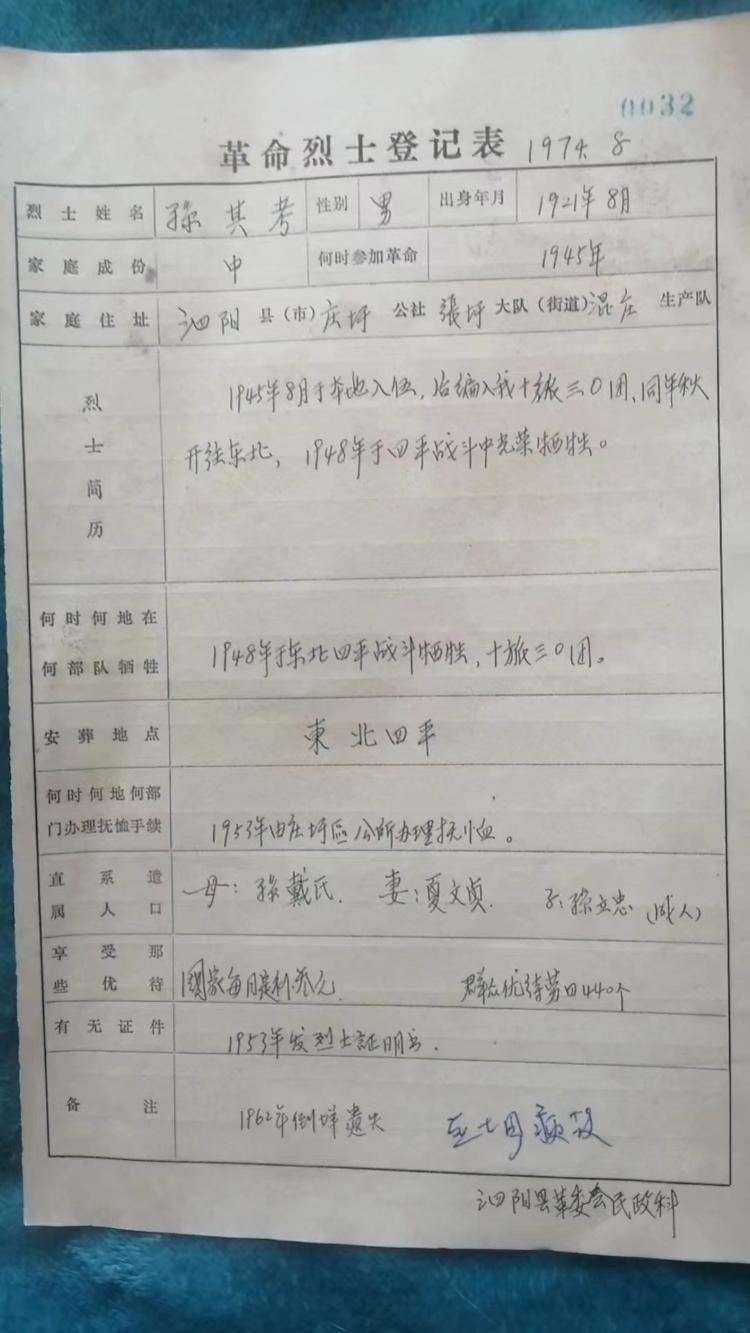 0032
革命烈士登记表 1974.8
烈士姓名 孫其考 性别 男 出身年月 1921年8月
家庭成份 中 何时参加革命 1945年
家庭住址 泗阳 县(市) 庄圩 公社 張圩 大队(街道) 混庄 生产队
烈士简历
1945年8月于本地入伍,后编入我十旅三〇团、同年秋
开往东北,1948年于四平战斗中光荣牺牲。
何时何地在
何部队牺牲
1948年于东北四平战斗牺牲,十旅三〇团。
安葬地点 東北四平
何时何地何部
门办理抚恤手续
1953年由庄圩區公所办理抚恤。
直系遗
属人口
母:孫戴氏. 妻:夏文贞. 子:孫立忠(成人)
享受那
些优待
國家每月 元. 群众优待劳日440个
有无证件 1953年发烈士証明书.
备注 1962年倒 遗失
泗阳县革委会民政科